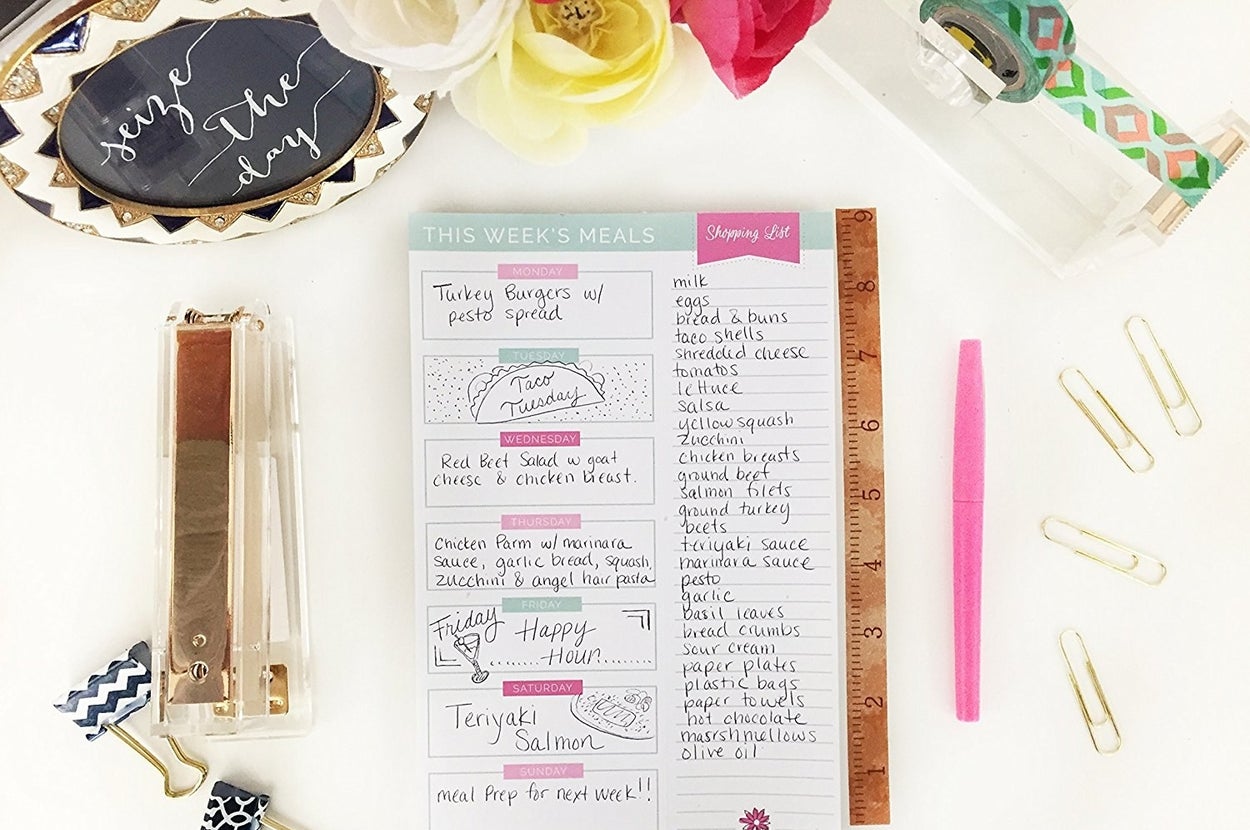 seize
the
day
THIS WEEK'S MEALS
MONDAY
Turkey Burgers w/
pesto spread
TUESDAY
Taco
Tuesday
WEDNESDAY
Red Beet Salad w goat
cheese & chicken breast.
THURSDAY
Chicken Parm w/ marinara
sauce, garlic bread, squash,
zucchini & angel hair pasta
FRIDAY
Friday
Happy
Hour
SATURDAY
Teriyaki
Salmon
SUNDAY
meal Prep for next week!!
Shopping List
milk
eggs
bread & buns
taco shells
shredded cheese
tomatos
lettuce
salsa
yellow squash
zucchini
chicken breasts
ground beef
salmon filets
ground turkey
beets
teriyaki sauce
marinara sauce
pesto
garlic
basil leaves
bread crumbs
sour cream
paper plates
plastic bags
paper towels
hot chocolate
masrshmellows
olive oil
9
8
7
6
5
4
3
2
1